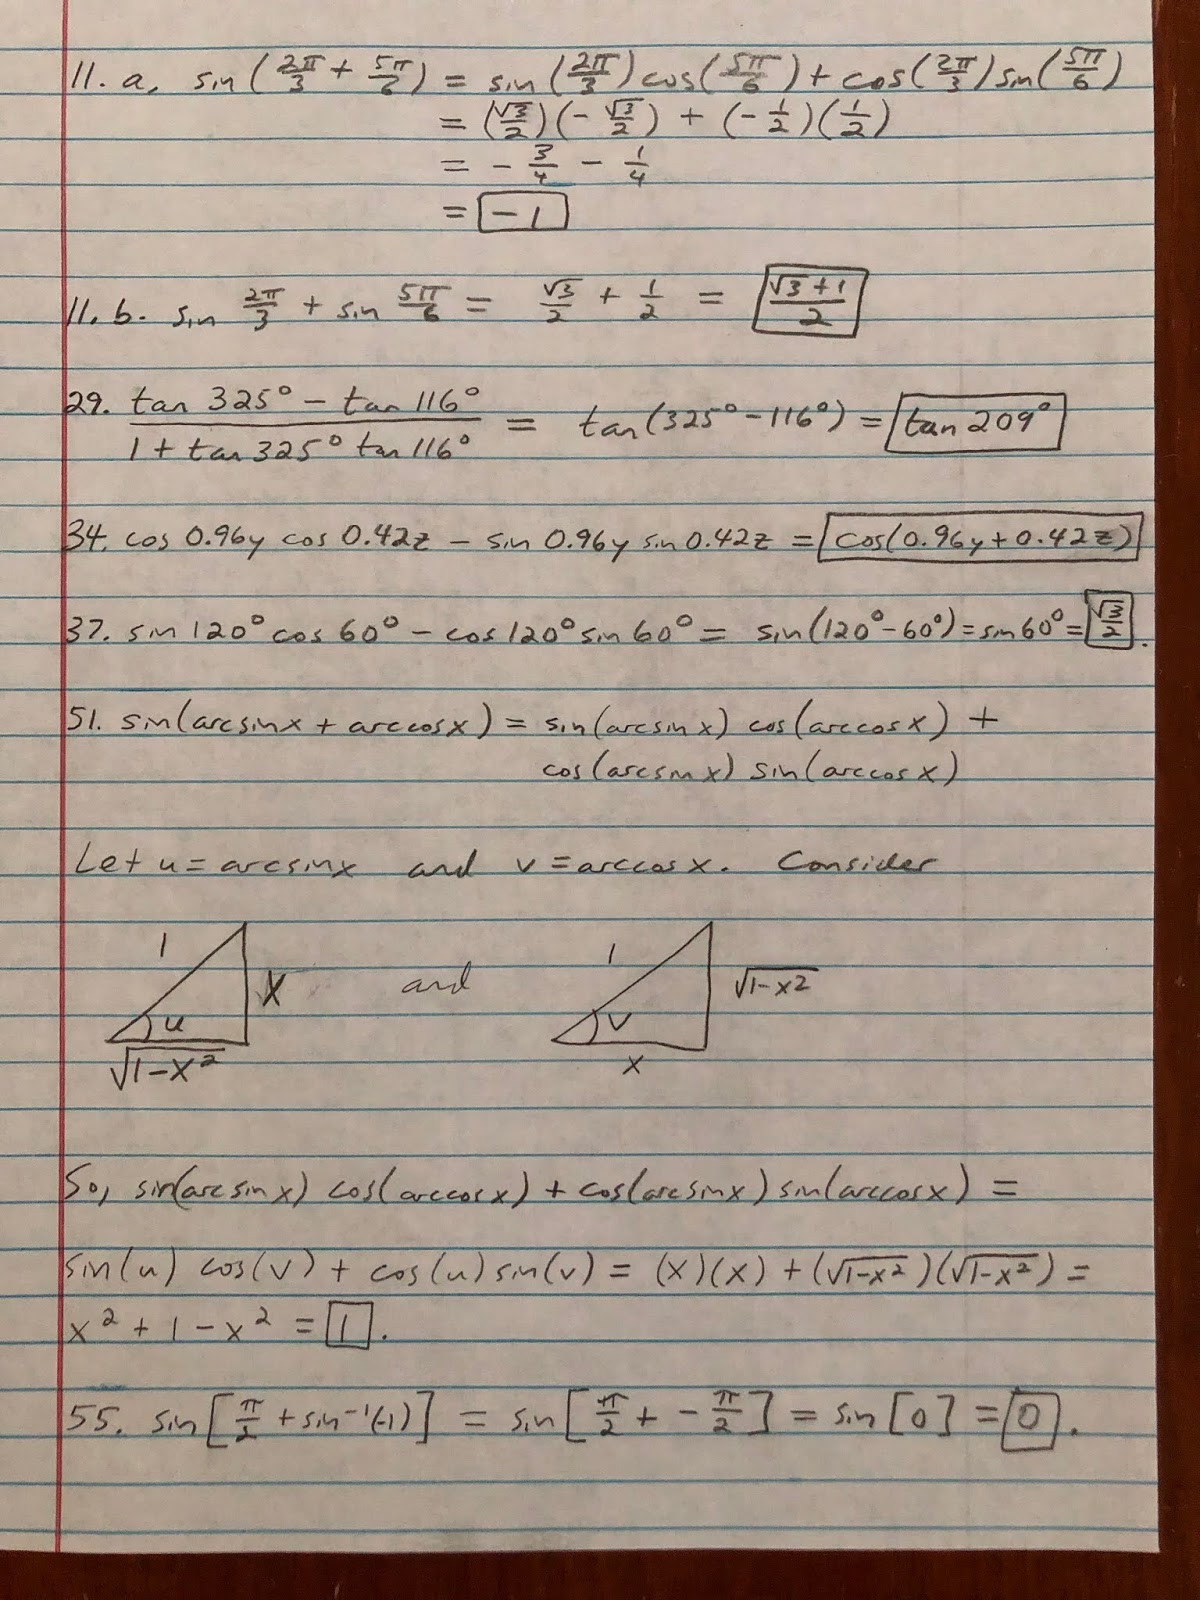 11. a. sin(2π/3 + 5π/6) = sin(2π/3)cos(5π/6) + cos(2π/3)sin(5π/6)
= (√3/2)(-√3/2) + (-1/2)(1/2)
= -3/4 - 1/4
= -1
11. b. sin 2π/3 + sin 5π/6 = √3/2 + 1/2 = (√3+1)/2
29. (tan 325° - tan 116°)/(1 + tan 325° tan 116°) = tan(325° - 116°) = tan 209°
34. cos 0.96y cos 0.42z - sin 0.96y sin 0.42z = cos(0.96y + 0.42z)
37. sin 120° cos 60° - cos 120° sin 60° = sin(120° - 60°) = sin 60° = √3/2.
51. sin(arcsin x + arccos x) = sin(arcsin x) cos(arccos x) +
cos(arcsin x) sin(arccos x)
Let u = arcsin x and v = arccos x. Consider
1 u x √1-x² and 1 v √1-x² x
So, sin(arcsin x) cos(arccos x) + cos(arcsin x) sin(arccos x) =
sin(u) cos(v) + cos(u) sin(v) = (x)(x) + (√1-x²)(√1-x²) =
x² + 1 - x² = 1.
55. sin[π/2 + sin⁻¹(-1)] = sin[π/2 + -π/2] = sin[0] = 0.